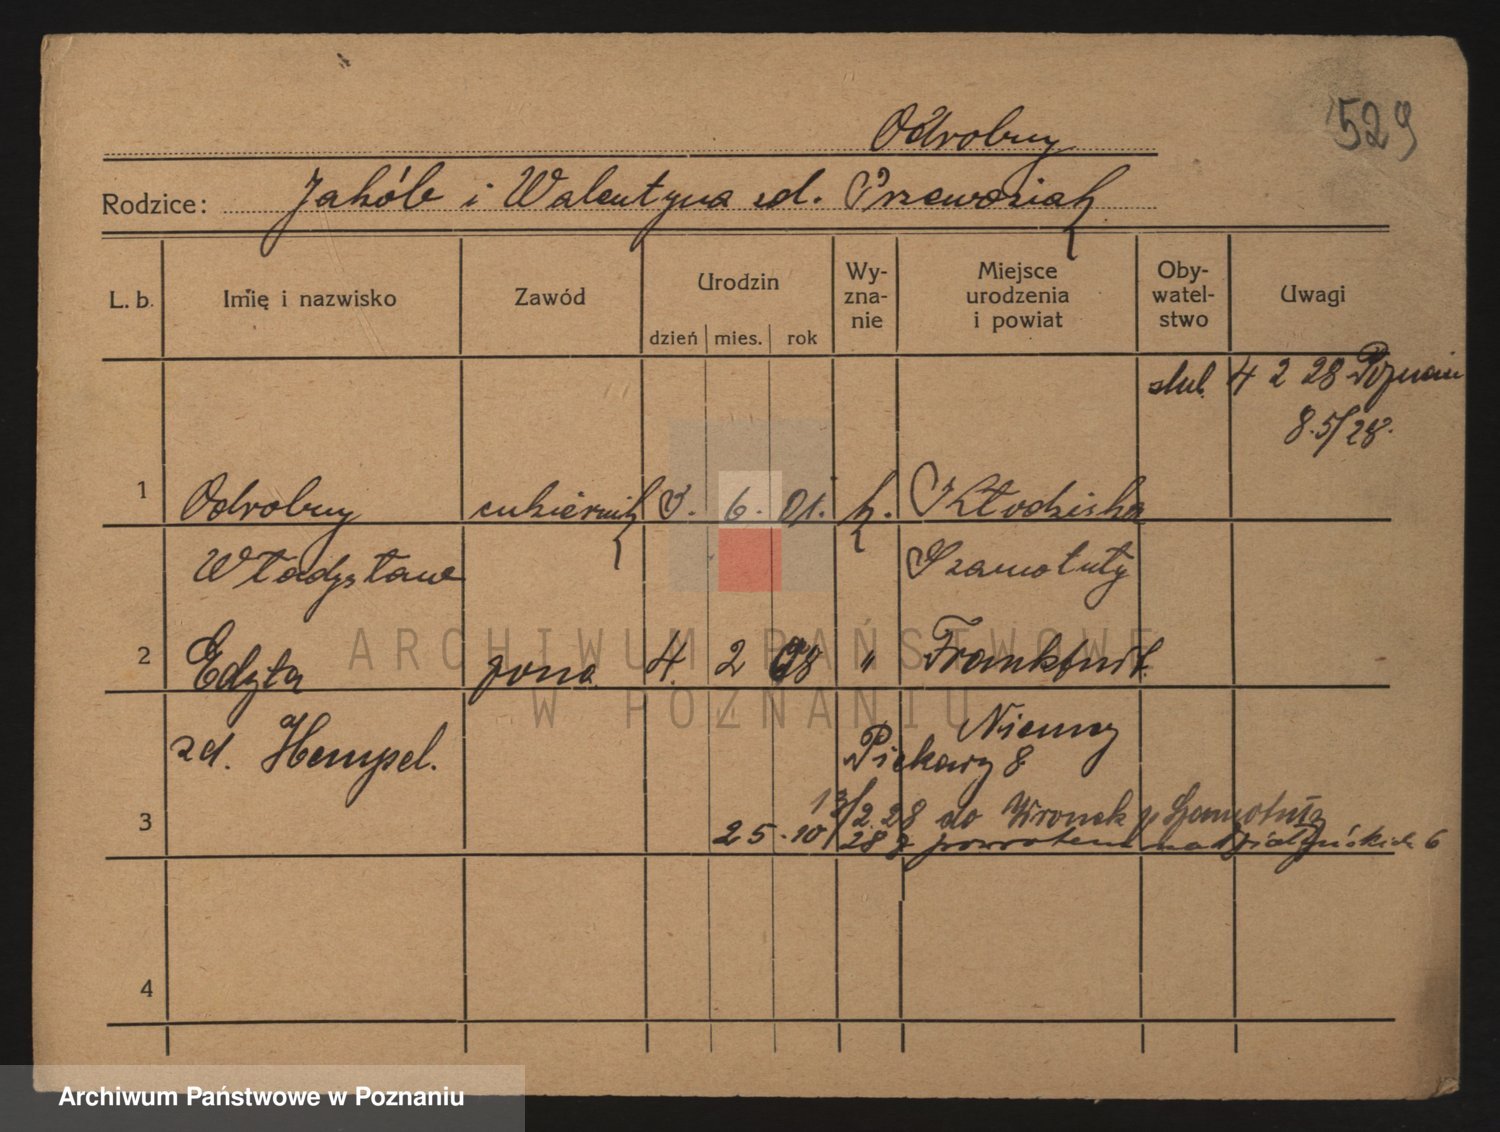 529
Odrobny
Rodzice: Jakób i Walentyna zd. Przewoziak
L. b. Imię i nazwisko Zawód Urodzin dzień mies. rok Wy-zna-nie Miejsce urodzenia i powiat Oby-watel-stwo Uwagi
slub. 4 2 28 Poznań
8.5/28.
1 Odrobny cukiernik 6. 01. k. Kłodziska
Władysław Szamotuły
2 Edyta żona 4. 2 08 " Frankfurt.
zd. Hempel. Niemcy
Piekary 8
3 13/2.28 do Wronek p Szamotuły
25.10 28 z powrotem na Działyńskich 6
4
ARCHIWUM PAŃSTWOWE
W POZNANIU
Archiwum Państwowe w Poznaniu